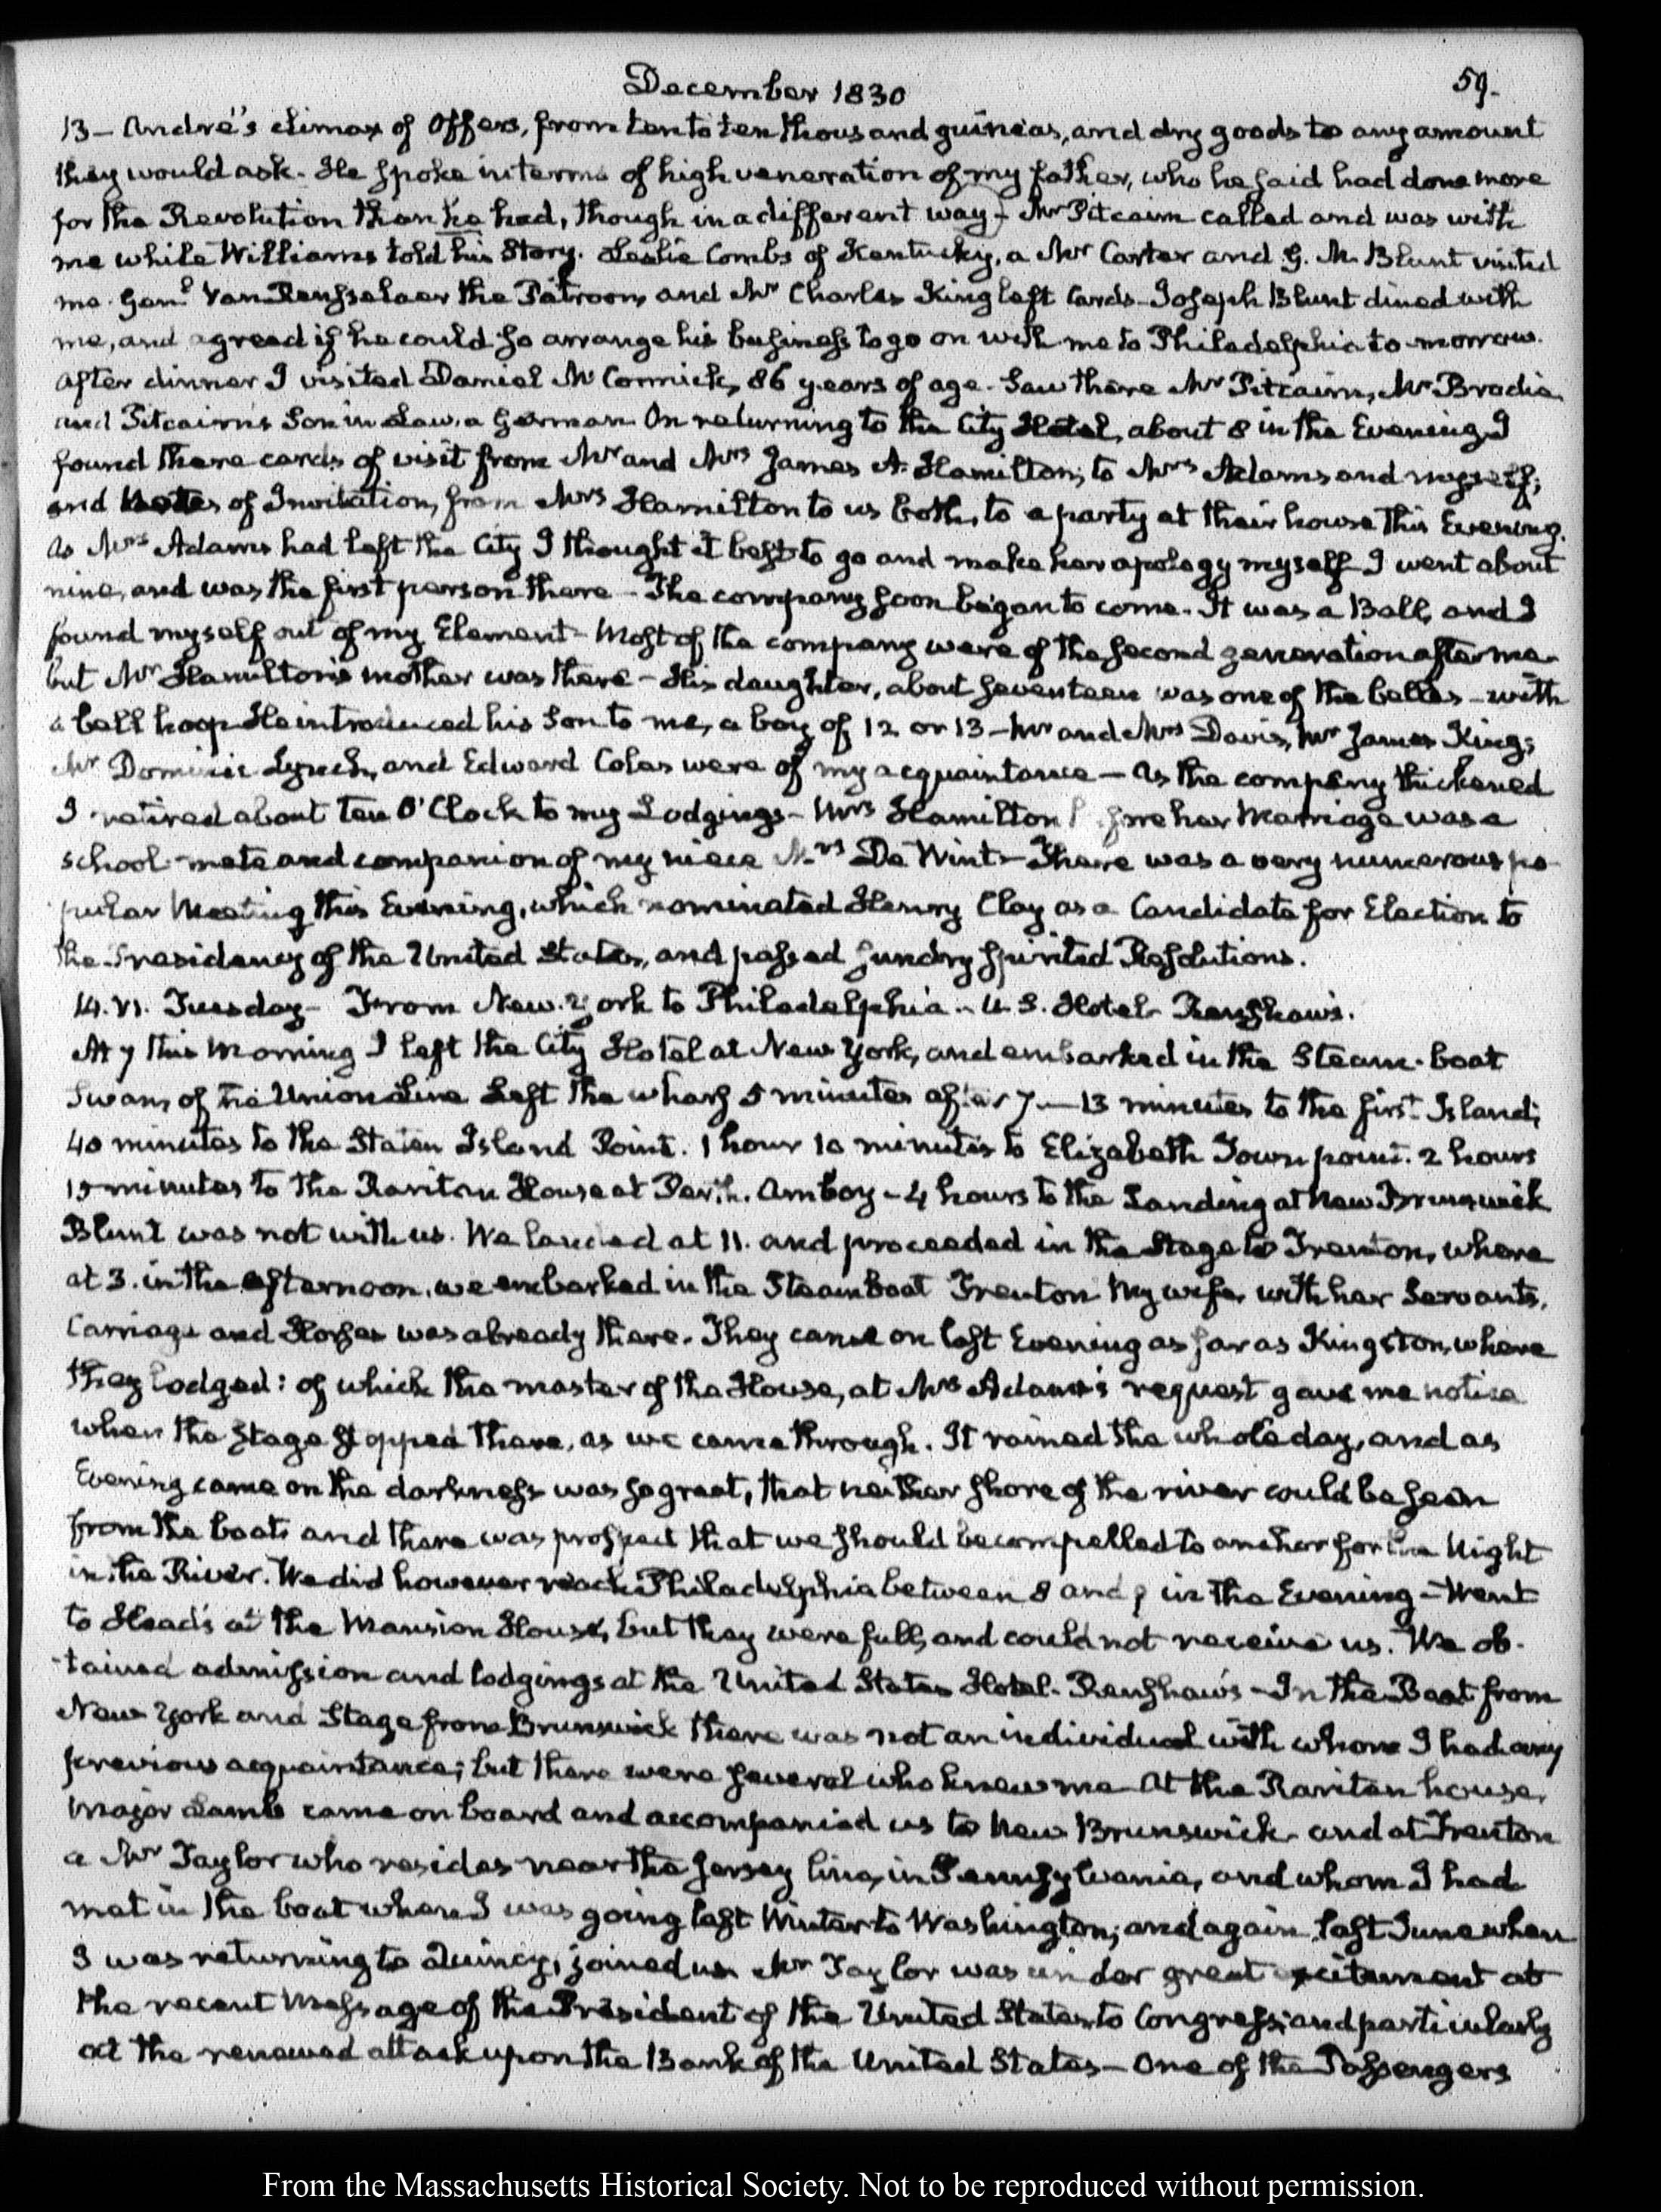 December 1830
59.
13 – André's climax of Offers, from ten to ten thousand guineas, and dry goods to any amount
they would ask. He spoke in terms of high veneration of my father, who he said had done more
for the Revolution than he had, though in a different way – Mr Pitcairn called and was with
me while Williams told his Story. Leslie Combs of Kentucky, a Mr Carter and G. M. Blunt visited
me. Genl Van Rensselaer the Patroon, and Mr Charles King left Cards – Joseph Blunt dined with
me, and agreed if he could so arrange his business to go on with me to Philadelphia to-morrow.
After dinner I visited Daniel McCormick, 86 years of age. Saw there Mr Pitcairn, Mr Brodie,
and Pitcairn's Son in Law, a German. On returning to the City Hotel, about 8 in the Evening, I
found there cards of visit from Mr and Mrs James A. Hamilton, to Mrs Adams and myself;
and Notes of Invitation, from Mrs Hamilton to us both, to a party at their house this Evening.
As Mrs Adams had left the City I thought it best to go and make her apology myself – I went about
nine, and was the first person there – The company soon began to come. It was a Ball, and I
found myself out of my Element – Most of the company were of the second generation after me –
but Mr Hamilton's mother was there – His daughter, about seventeen was one of the belles – with
a bell hoop. He introduced his Son to me, a boy of 12 or 13 – Mr and Mrs Davis, Mr James King,
Mr Dominic Lynch, and Edward Coles were of my acquaintance – As the company thickened
I retired about ten O'Clock to my Lodgings – Mrs Hamilton before her Marriage was a
school-mate and companion of my niece Mrs De Wint – There was a very numerous po-
pular Meeting this Evening, which nominated Henry Clay as a Candidate for Election to
the Presidency of the United States, and passed sundry spirited Resolutions.
14. VI. Tuesday – From New-York to Philadelphia – U.S. Hotel – Renshaw's.
At 7 this Morning I left the City Hotel at New York, and embarked in the Steam-boat
Swan, of the Union Line Left the wharf 5 minutes after 7 – 13 minutes to the first Island;
40 minutes to the Staten Island Point. 1 hour 10 minutes to Elizabeth Town point. 2 hours
15 minutes to the Raritan House at Perth Amboy – 4 hours to the Landing at New Brunswick
Blunt was not with us. We landed at 11. and proceeded in the Stage to Trenton, where
at 3. in the afternoon, we embarked in the Steamboat Trenton My wife, with her Servants,
Carriage and Horses was already there. They came on last Evening as far as Kingston, where
they lodged: of which the master of the House, at Mrs Adams's request gave me notice
when the Stage stopped there, as we came through. It rained the whole day, and as
Evening came on the darkness was so great, that neither shore of the river could be seen
from the boat, and there was prospect that we should be compelled to anchor for the Night
in the River. We did however reach Philadelphia between 8 and 9 in the Evening – Went
to Head's at the Mansion House, but they were full, and could not receive us. We ob-
-tained admission and lodgings at the United States Hotel. Renshaw's – In the Boat from
New York and Stage from Brunswick there was not an individual with whom I had any
previous acquaintance; but there were several who knew me – At the Raritan house,
Major Lamb came on board and accompanied us to New Brunswick – and at Trenton
a Mr Taylor who resides near the Jersey line, in Pennsylvania, and whom I had
met in the boat when I was going last Winter to Washington; and again last June when
I was returning to Quincy, joined us Mr Taylor was under great excitement at
the recent Message of the President of the United States to Congress; and particularly
at the renewed attack upon the Bank of the United States – One of the Passengers
From the Massachusetts Historical Society. Not to be reproduced without permission.